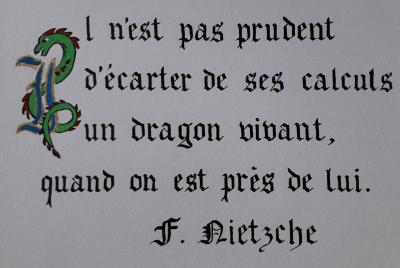 Il n'est pas prudent
d'écarter de ses calculs
un dragon vivant,
quand on est près de lui.
F. Nietzche